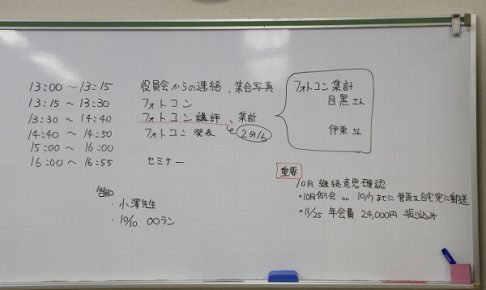 13:00 ～ 13:15 役員会からの連絡、集合写真
13:15 ～ 13:30 フォトコン
13:30 ～ 14:40 フォトコン講評、集計
14:40 ～ 14:50 フォトコン発表
2分/人
15:00 ～ 16:00
16:00 ～ 16:55 セミナー
フォトコン集計
目黒さん
伊東さん
告知
・小澤先生
・10/10 〇〇ラン
重要
10月 継続意思確認
・10月例会 10/1までに 自宅宛に郵送
・11/25 年会費 24,000円 振り込み